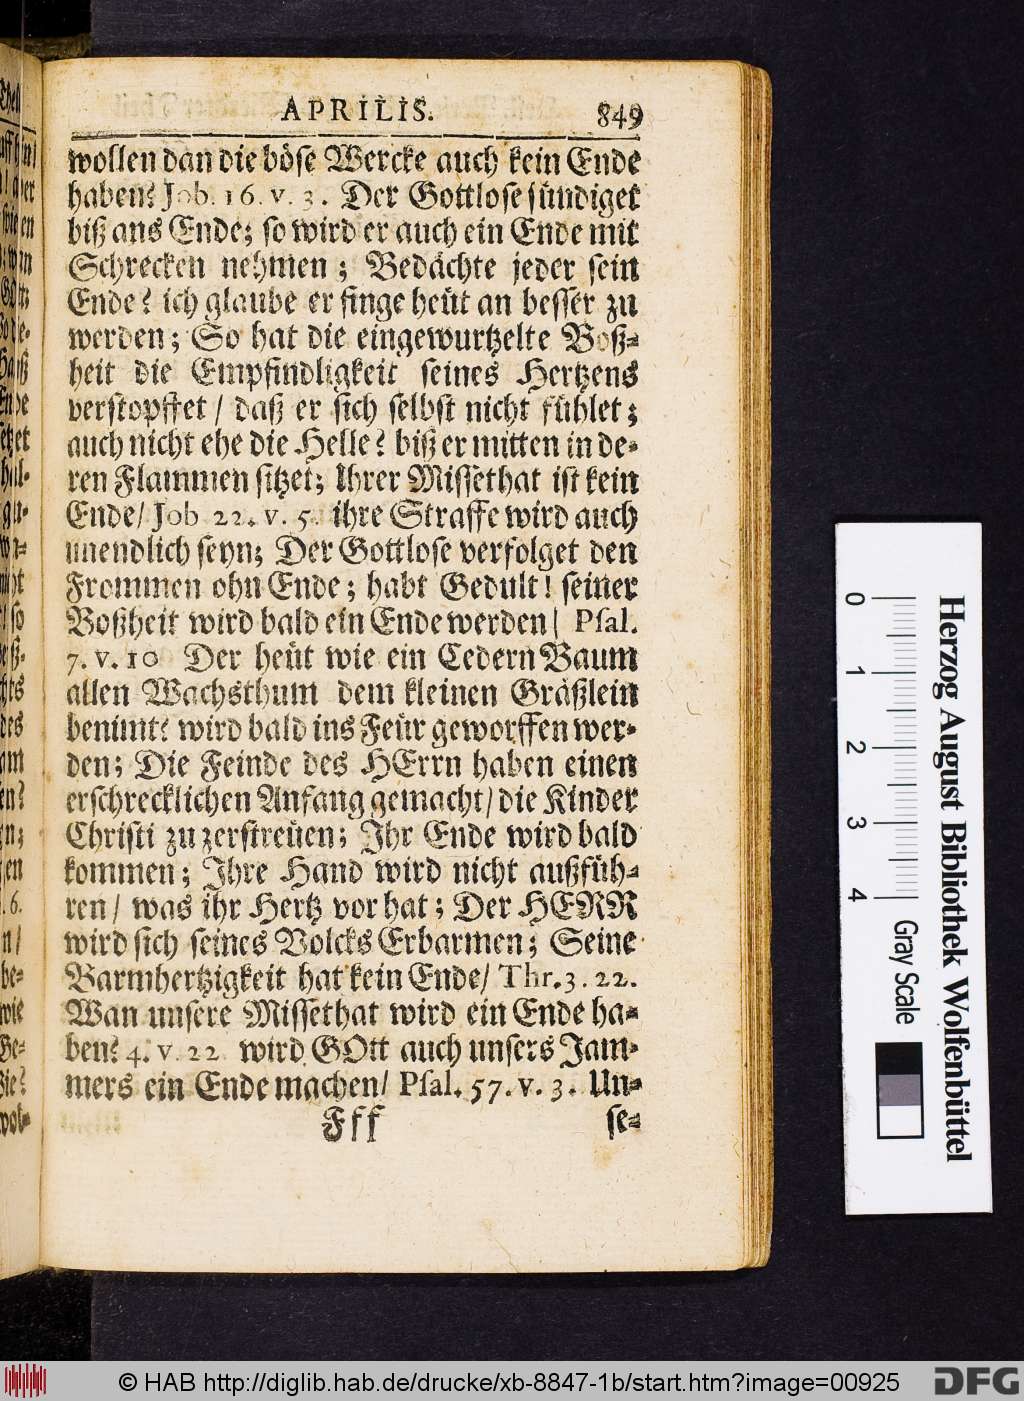 APRILIS. 849
wollen dan die böse Wercke auch kein Ende
haben? Job. 16. v. 3. Der Gottlose sündiget
biß ans Ende; so wird er auch ein Ende mit
Schrecken nehmen; Bedächte jeder sein
Ende? ich glaube er finge heüt an besser zu
werden; So hat die eingewurtzelte Boß-
heit die Empfindligkeit seines Hertzens
verstopffet / daß er sich selbst nicht fühlet;
auch nicht ehe die Helle? biß er mitten in de-
ren Flammen sitzet; Ihrer Missethat ist kein
Ende / Job 22. v. 5. ihre Straffe wird auch
unendlich seyn; Der Gottlose verfolget den
Frommen ohn Ende; habt Gedult! seiner
Boßheit wird bald ein Ende werden / Psal.
7. v. 10 Der heüt wie ein Cedern Baum
allen Wachsthum dem kleinen Gräßlein
benimt? wird bald ins Feür geworffen wer-
den; Die Feinde des HErrn haben einen
erschrecklichen Anfang gemacht / die Kinder
Christi zu zerstreüen; Ihr Ende wird bald
kommen; Ihre Hand wird nicht außfüh-
ren / was ihr Hertz vor hat; Der HERR
wird sich seines Volcks Erbarmen; Seine
Barmhertzigkeit hat kein Ende / Thr. 3. 22.
Wan unsere Missethat wird ein Ende ha-
ben? 4. v. 22 wird GOtt auch unsers Jam-
mers ein Ende machen / Psal. 57. v. 3. Un-
Fff se-
0 1 2 3 4
Gray Scale
Herzog August Bibliothek Wolfenbüttel
© HAB http://diglib.hab.de/drucke/xb-8847-1b/start.htm?image=00925
DFG